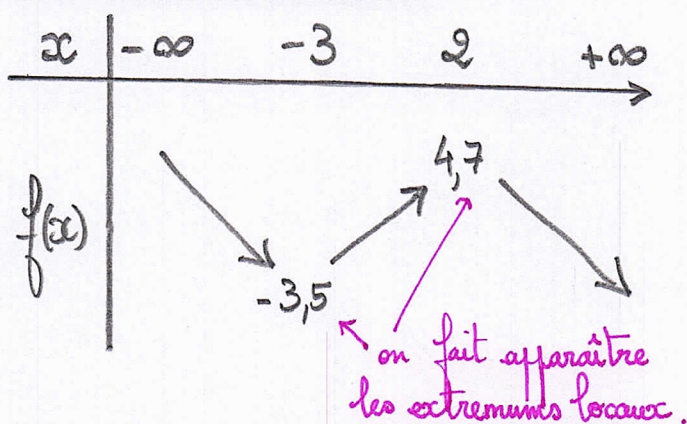 x -∞ -3 2 +∞
4,7
f(x)
-3,5
on fait apparaître
les extremums locaux.